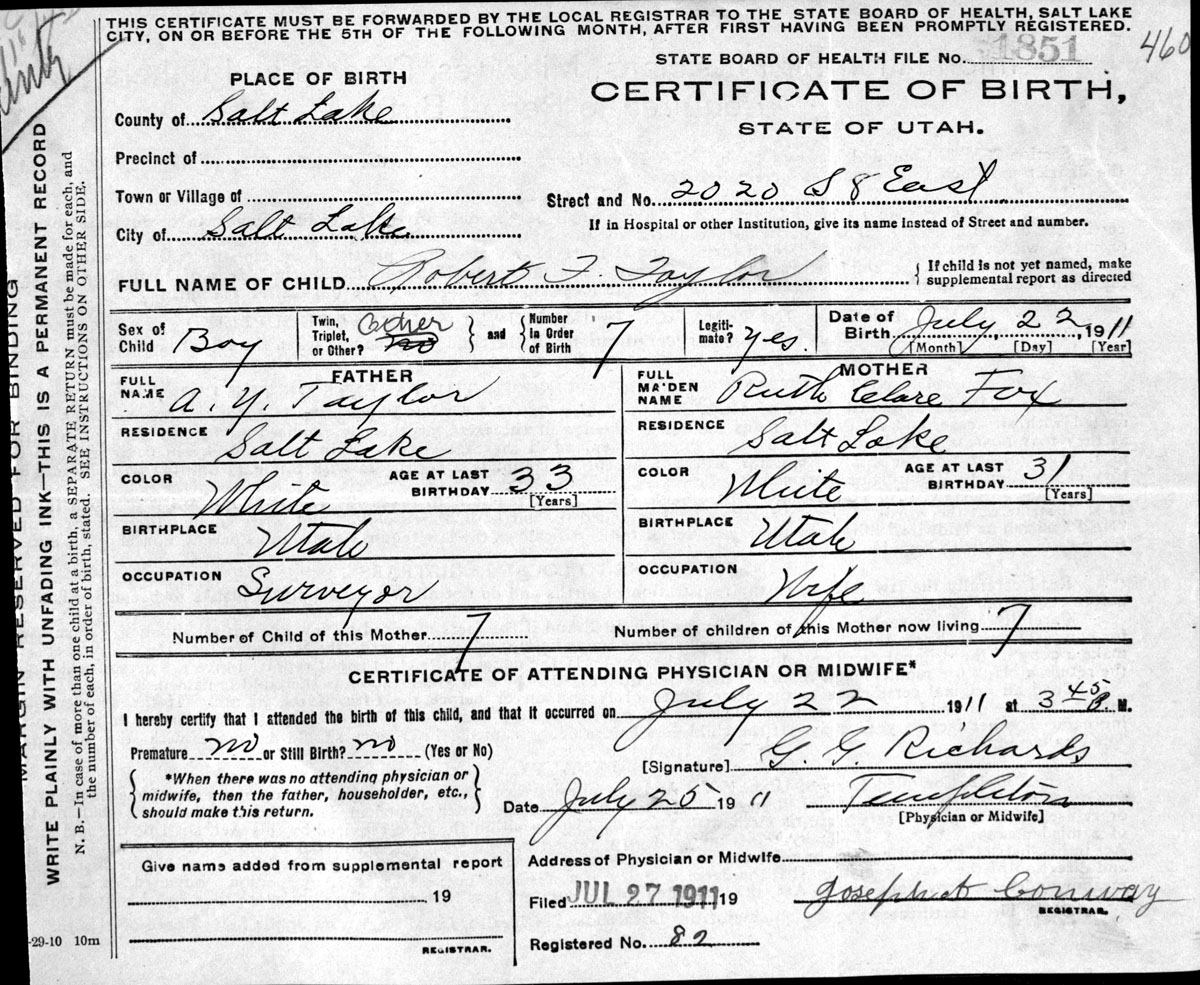 THIS CERTIFICATE MUST BE FORWARDED BY THE LOCAL REGISTRAR TO THE STATE BOARD OF HEALTH, SALT LAKE
CITY, ON OR BEFORE THE 5TH OF THE FOLLOWING MONTH, AFTER FIRST HAVING BEEN PROMPTLY REGISTERED.
460
STATE BOARD OF HEALTH FILE No. 1851
PLACE OF BIRTH
CERTIFICATE OF BIRTH,
STATE OF UTAH.
County of Salt Lake
Precinct of
Town or Village of
Street and No. 2020 S 8 East
City of Salt Lake
If in Hospital or other Institution, give its name instead of Street and number.
FULL NAME OF CHILD Robert F. Taylor
If child is not yet named, make
supplemental report as directed
Sex of Child Boy
Twin, Triplet, or Other? no Other
and Number in Order of Birth 7
Legiti-mate? yes.
Date of Birth July 22 1911
[Month] [Day] [Year]
FATHER
FULL NAME A. Y. Taylor
RESIDENCE Salt Lake
COLOR White
AGE AT LAST BIRTHDAY 33
[Years]
BIRTHPLACE Utah
OCCUPATION Surveyor
MOTHER
FULL MAIDEN NAME Ruth Clare Fox
RESIDENCE Salt Lake
COLOR White
AGE AT LAST BIRTHDAY 31
[Years]
BIRTHPLACE Utah
OCCUPATION Wife
Number of Child of this Mother 7
Number of children of this Mother now living 7
CERTIFICATE OF ATTENDING PHYSICIAN OR MIDWIFE*
I hereby certify that I attended the birth of this child, and that it occurred on July 22 1911 at 3 45 M.
Premature no or Still Birth? no (Yes or No)
[Signature] G. G. Richards
*When there was no attending physician or
midwife, then the father, householder, etc.,
should make this return.
Date July 25 1911
Templeton
[Physician or Midwife]
Give name added from supplemental report
, 19
REGISTRAR.
Address of Physician or Midwife
Filed JUL 27 1911 19
Joseph A Conway
REGISTRAR.
Registered No. 82
-29-10 10m
MARGIN RESERVED FOR BINDING
WRITE PLAINLY WITH UNFADING INK—THIS IS A PERMANENT RECORD
N. B.—In case of more than one child at a birth, a SEPARATE RETURN must be made for each, and
the number of each, in order of birth, stated. SEE INSTRUCTIONS ON OTHER SIDE.